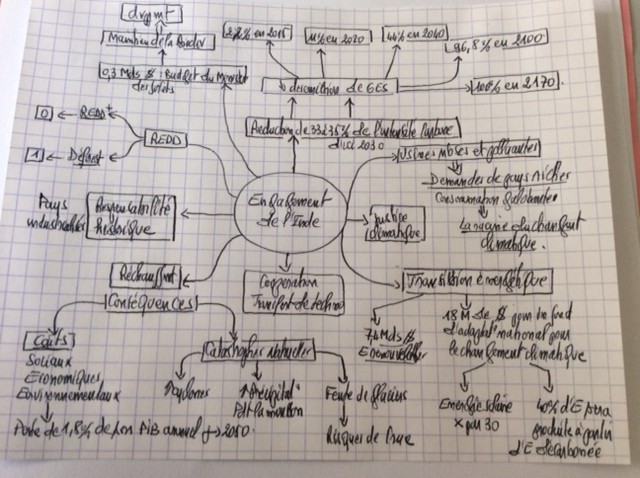 dvppmt
Maintien de la
0,3 Mds $ : Budget du
des forêts
2,2% en 2015
11% en 2020
44% en 2040
96,8% en 2100
100% en 2170
↓ des émissions de GES
Réduction de 33 à 35% de l'intensité Carbone
d'ici 2030
0 ← REDD+
REDD
1 ← Déforest
Usines moses et polluantes
Demandes de pays riches
Consommation
La racine du changemt
climatique.
Engagement
de l'Inde
Pays
industrialisés
Responsabilité
historique
Justice
climatique
Réchauffmt
Conséquences
Coopération
Transfert de techno
Transition énergétique
7,4 Mds $
E renouvelable
18 M de $ pour
d'adaptat° national pour
le changement climatique
Energie solaire
x par 30
40% d'E sera
produite à partir
d'E décarbonée
Coûts
Sociaux
Economiques
Environnementaux
Perte de 1,8% de son PIB annuel → 2050.
Catastrophes naturelles
↑ cyclones
↑ Précipitat°
Pdt la mousson
Fonte de glaciers
Risques de crue